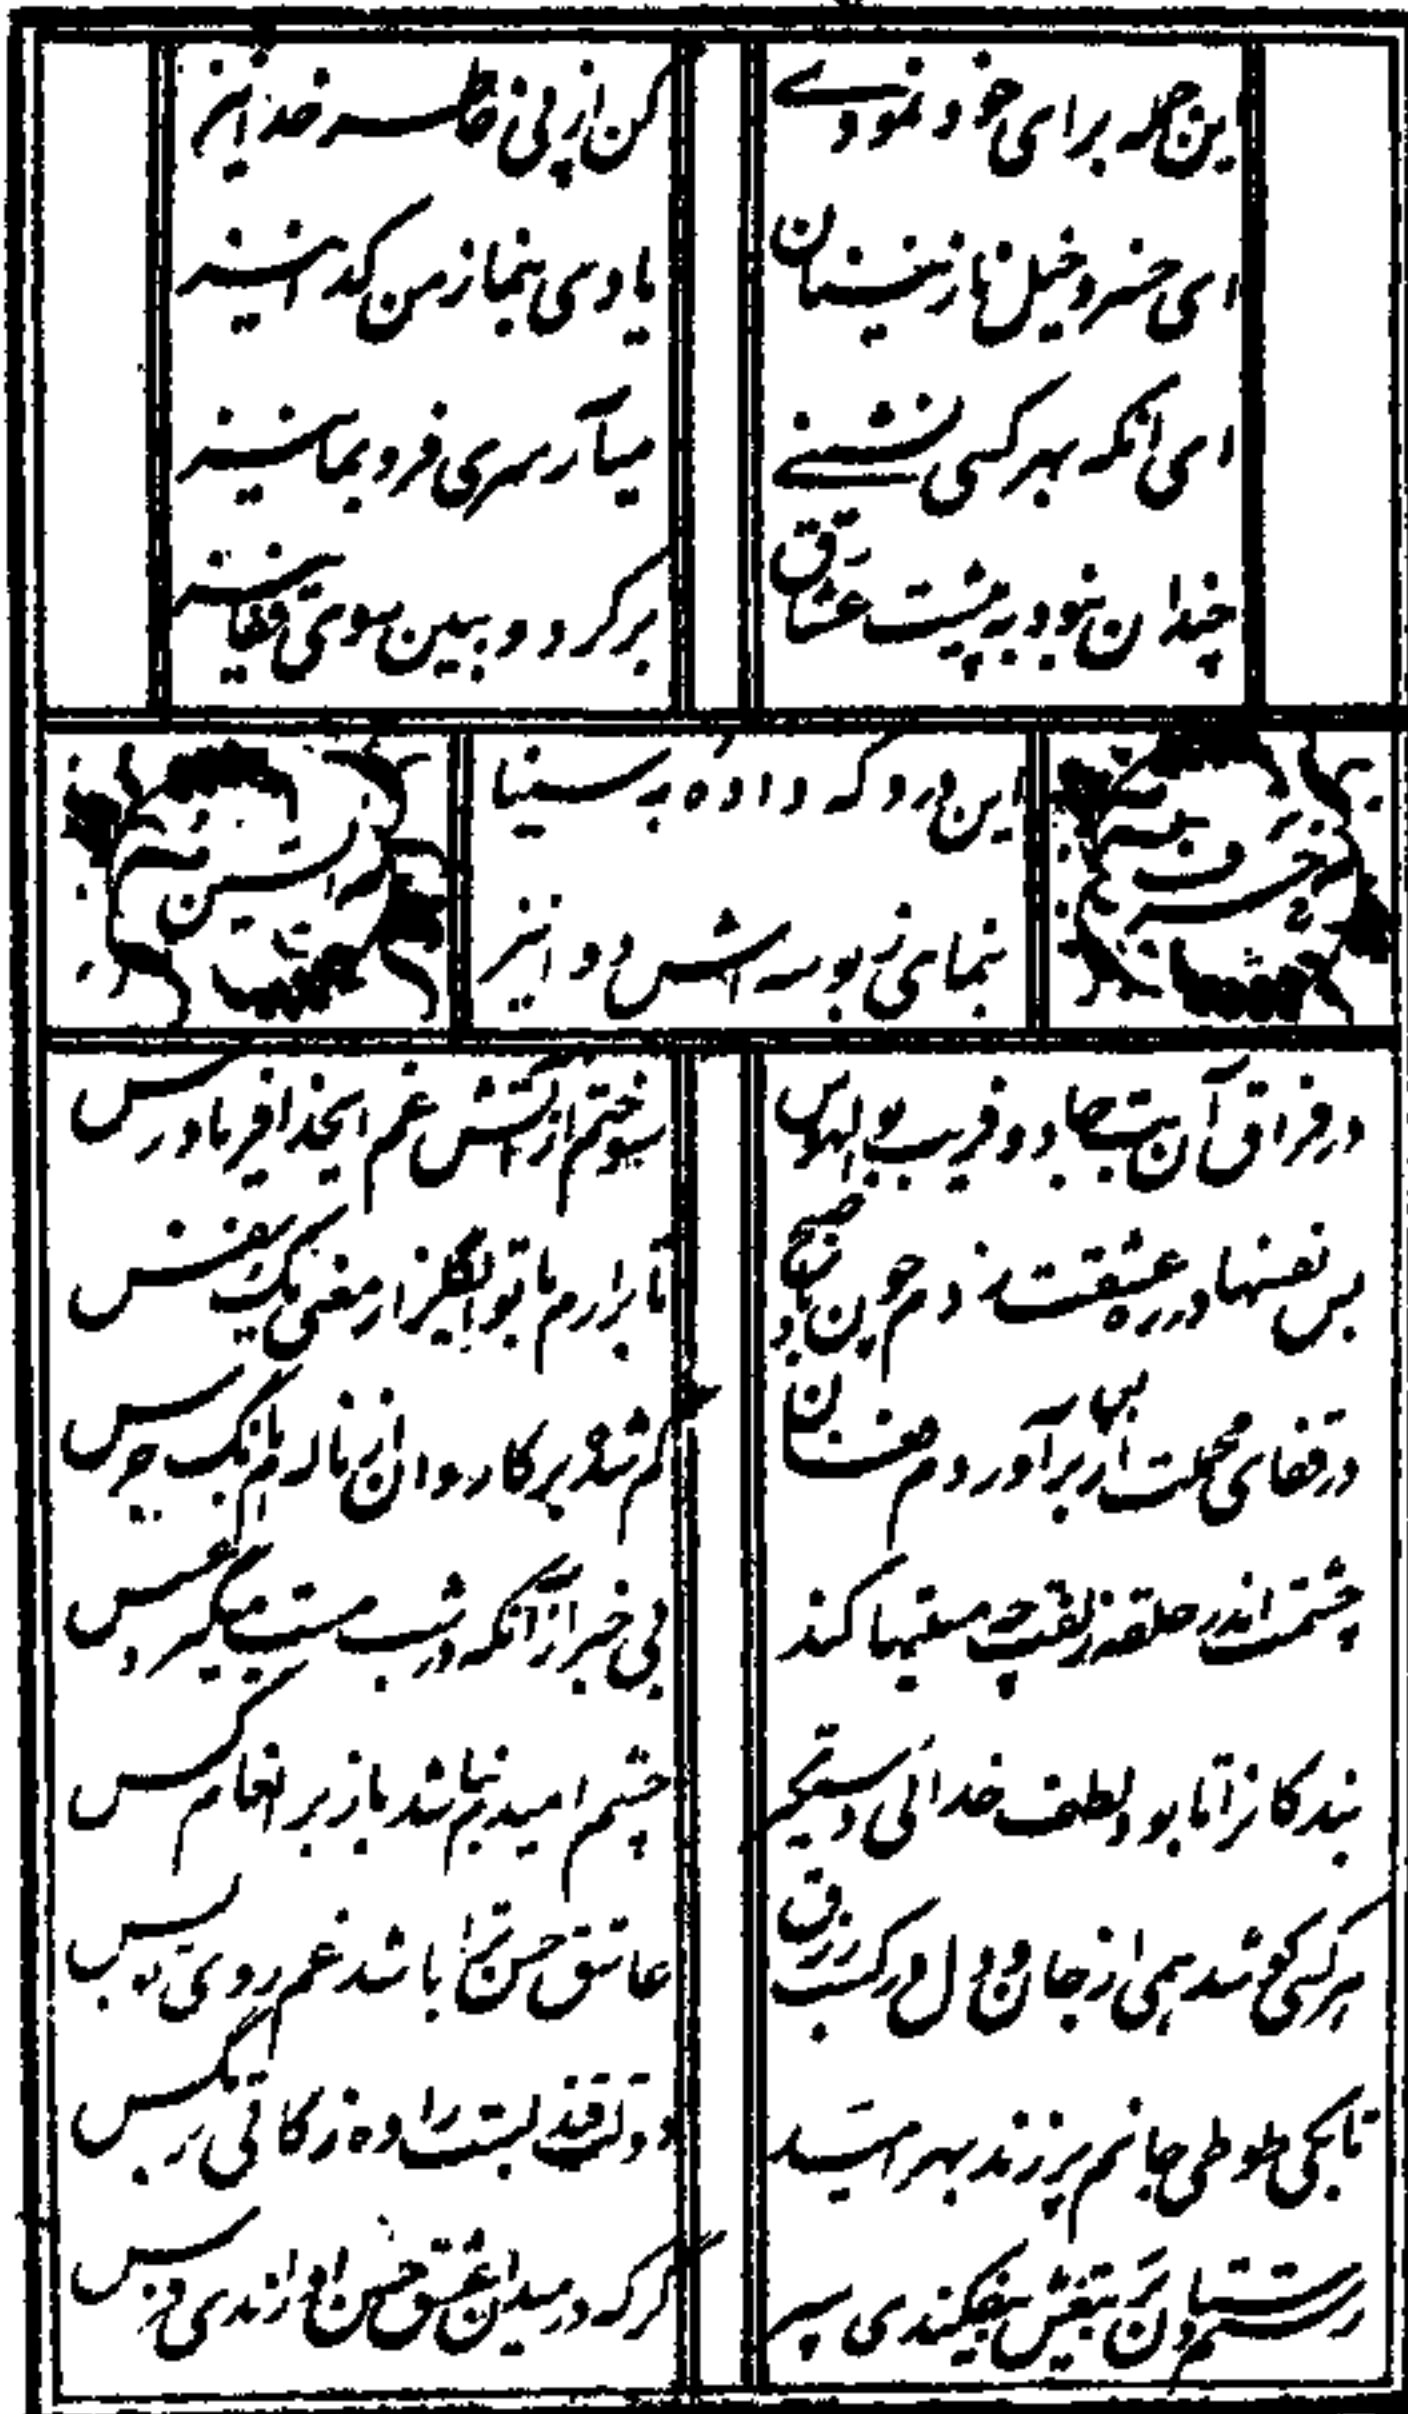 این جمله برای خود نمودے
کن از پی خاطر خدا نیز
ای خسرو خیل نازنینان
یادی بنما ز من گدا نیز
ای آنکه بهر کسی نشینے
میآر سری فرو بما نیز
چندان نبود به پشت عشاق
برگرد و ببین سوی قفا نیز
این درد که داده به سینا
بنمای ز بوسه اش دوا نیز
حرف
در فراق آن بت جادو فریب بوالهوس
سوختم از آتش غم ایخدا فریادرس
بس نفسها در ره عشقت زدم چون باد صبح
تا برارم با تو ای گلزار معنی یک نفس
در قفای محملت از بر آوردم فغان
گم شد بر کاروان از ناله ام بانگ جرس
چشمت اندر حلقه زلفت چه مستیها کند
بی خبر از آنکه در شب مست میگیرد عسس
بندگانرا تا بود لطف خدائی دستگیر
چشم امیدیم نباشد باز بر انعام کس
هر کسی کوشد همی از جان و دل در کسب رزق
عاشق حسن ترا باشد غم روی تو بس
تا بکی طوطی جانم پر زند بهر امید
دولت قند لبت را ده زکاتی بر مگس
رستم دستان ز تیغش بفکندی سپر
گر که در میدان عشق حسن او راندی فرس